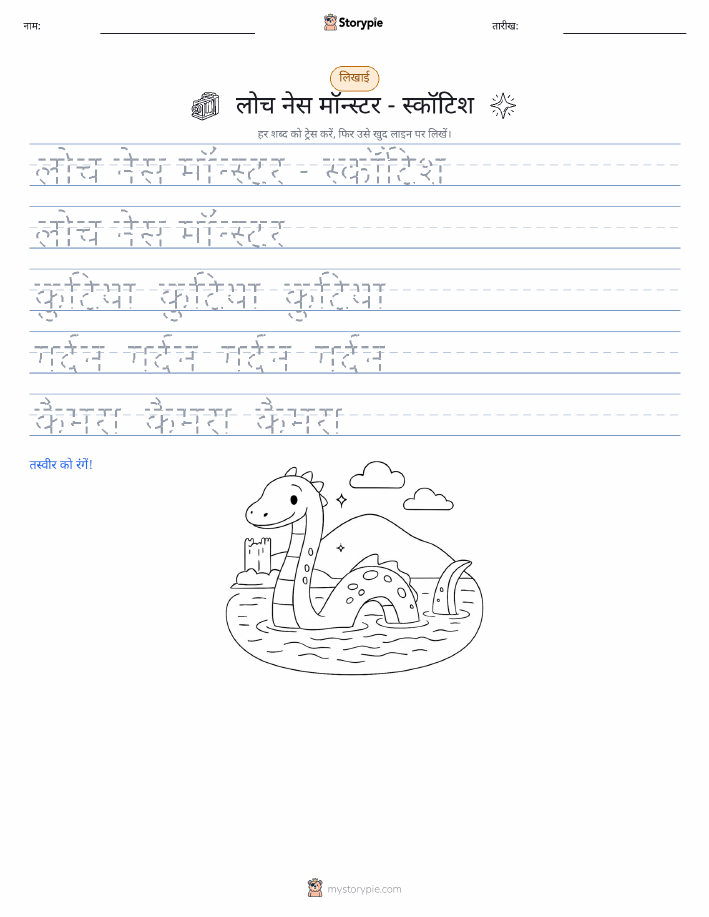 नाम:
Storypie
तारीख:
लिखाई
लोच नेस मॉन्स्टर - स्कॉटिश
हर शब्द को ट्रेस करें, फिर उसे खुद लाइन पर लिखें।
लोच नेस मॉन्स्टर - स्कॉटिश
लोच नेस मॉन्स्टर
कुटिया कुटिया कुटिया
गर्दन गर्दन गर्दन गर्दन
कैमरा कैमरा कैमरा
तस्वीर को रंगें!
mystorypie.com